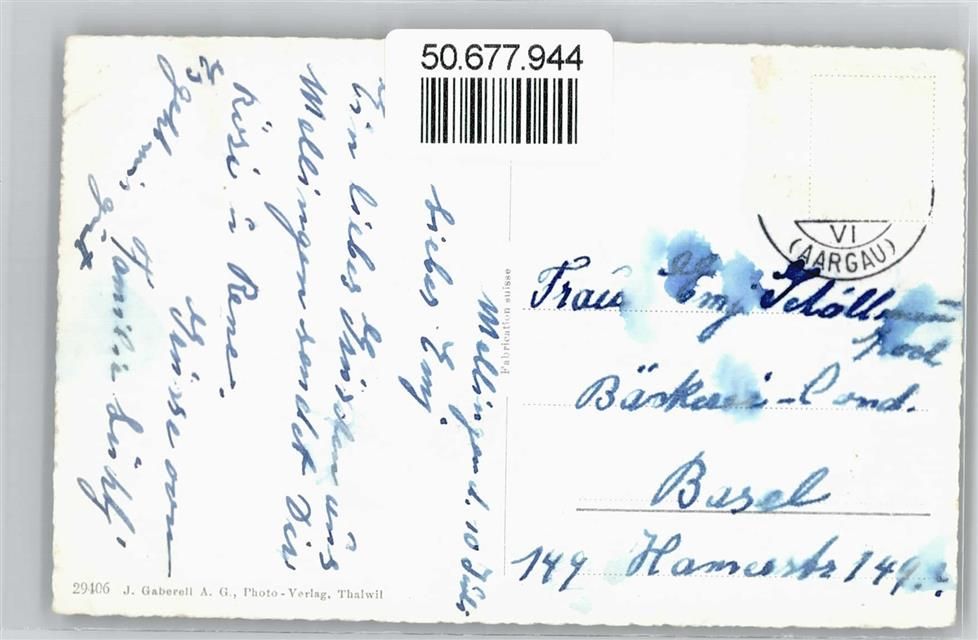 50.677.944
VI
(AARGAU)
Mellingen d. 10 Juli.
Liebes Emy.
Ein liebes Grüsschen aus
Mellingen sendet Dir
Rösi u Rene.
Geht mir
gut
Grüsse von
Familie
Fabrication suisse
Frau Emy
Bäckerei-Cond.
Basel
149 149
29406 J. Gaberell A. G., Photo-Verlag, Thalwil